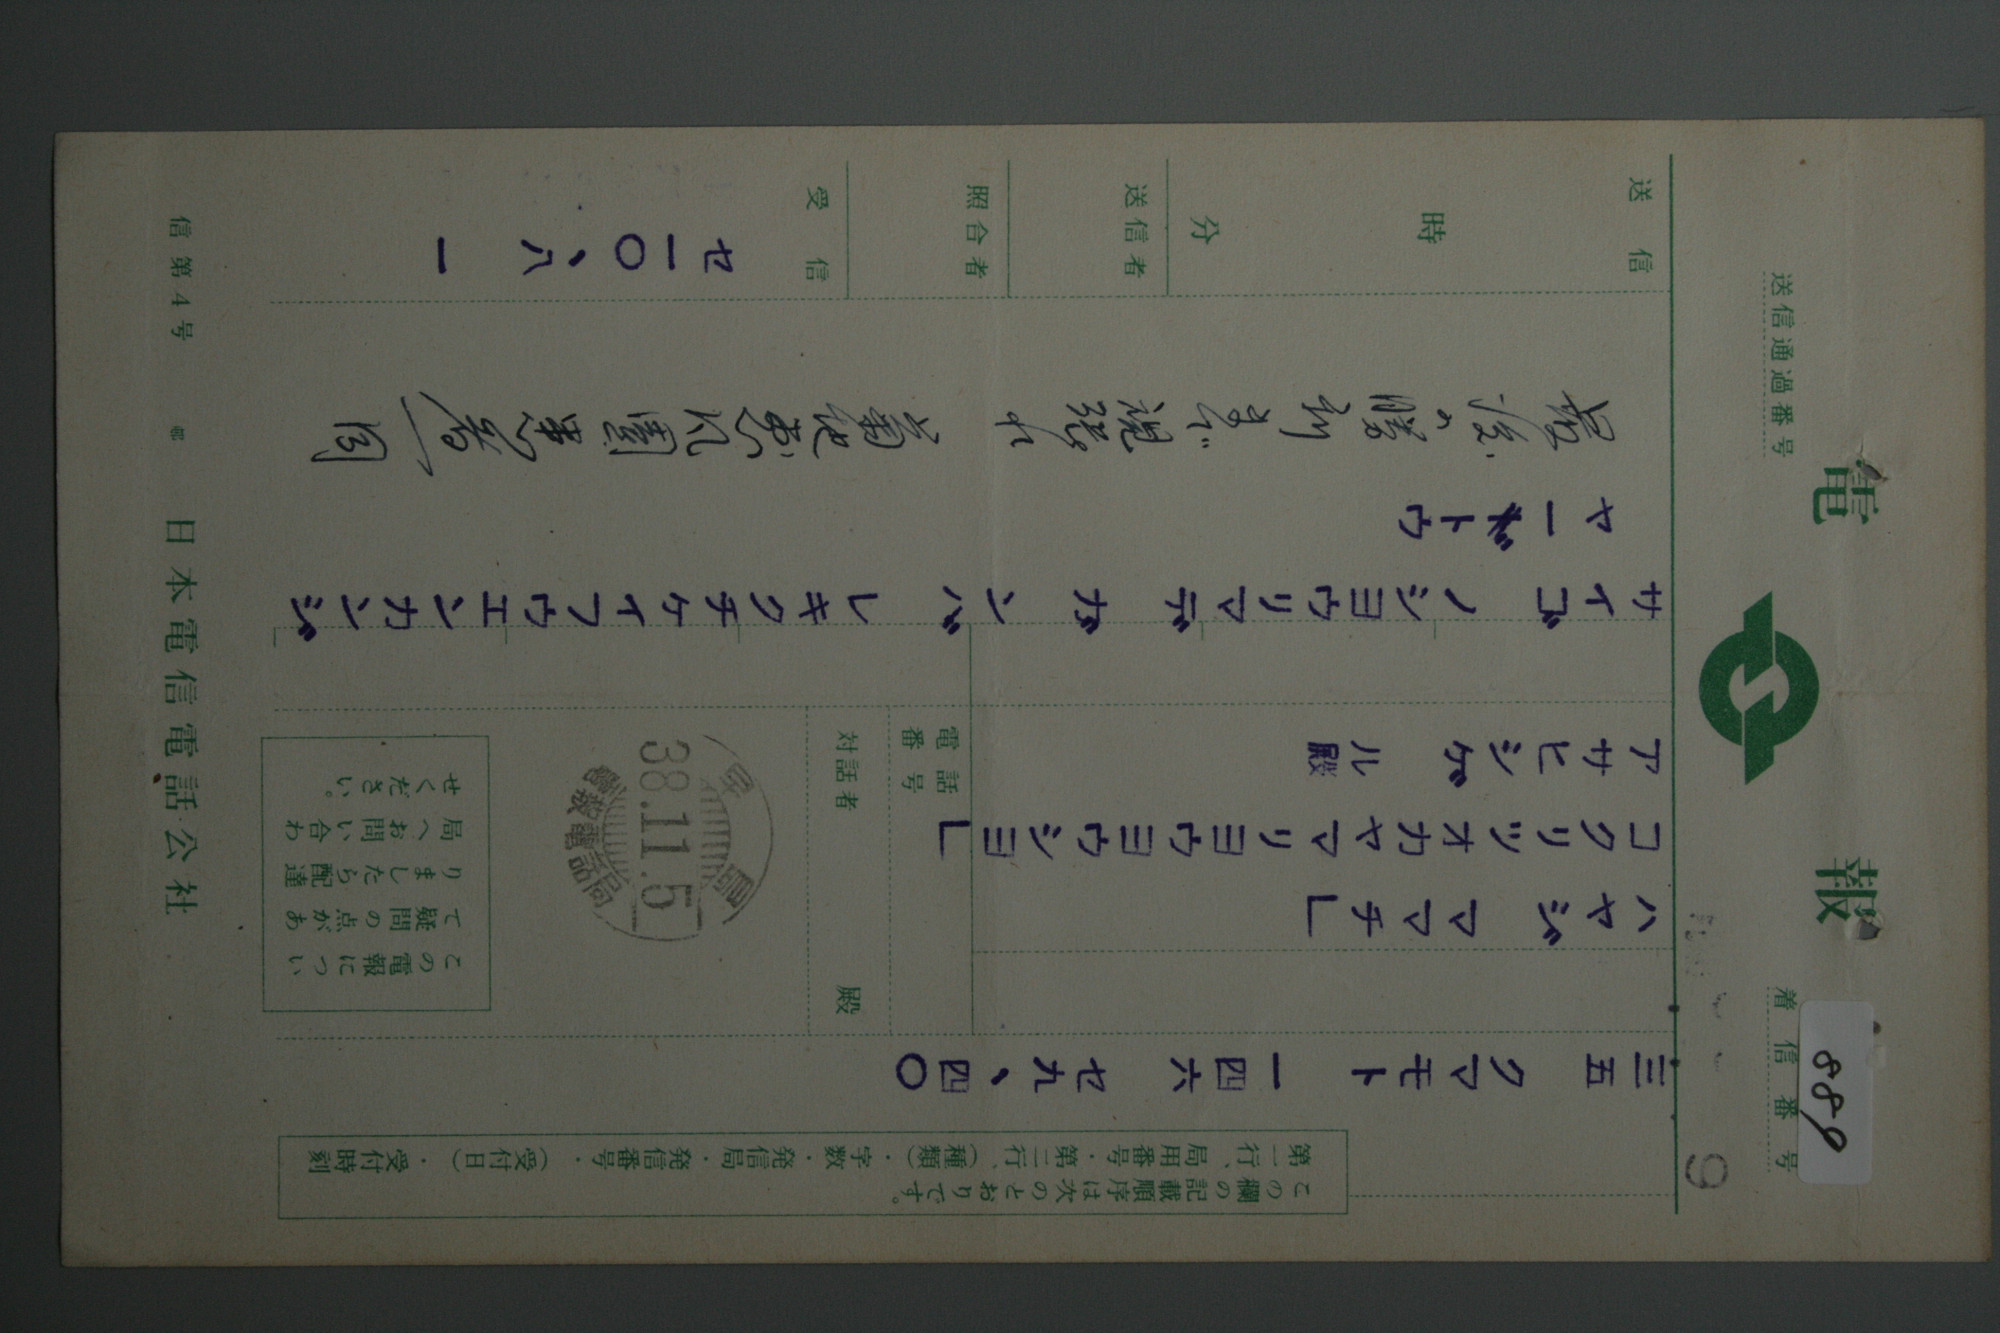 電報
送信通過番号
着信番号
889
9
この欄の記載順序は次のとおりです。
第一行、局用番号・第二行、(種類)・字数・発信局・発信番号・(受付日)・受付時刻
三五 クマモト 一四六 セ九、四〇
ハヤシ゛ママチ」
コクリツオカヤマリヨウヨウシヨ」
アサヒシケ゛ル殿
電話番号
対話者
殿
38.11.5
この電報につい
て疑問の点があ
りましたら配達
局へお問い合わ
せください。
サイコ゛ノシヨウリマテ゛カ゛ンハ゛レキクチケイフウエンカンシ゛
ヤート
最後の勝利まで
菊池恵楓園患者
送信
時
分
送信者
照合者
受信
セ一〇、八一
信第4号
日本電信電話公社